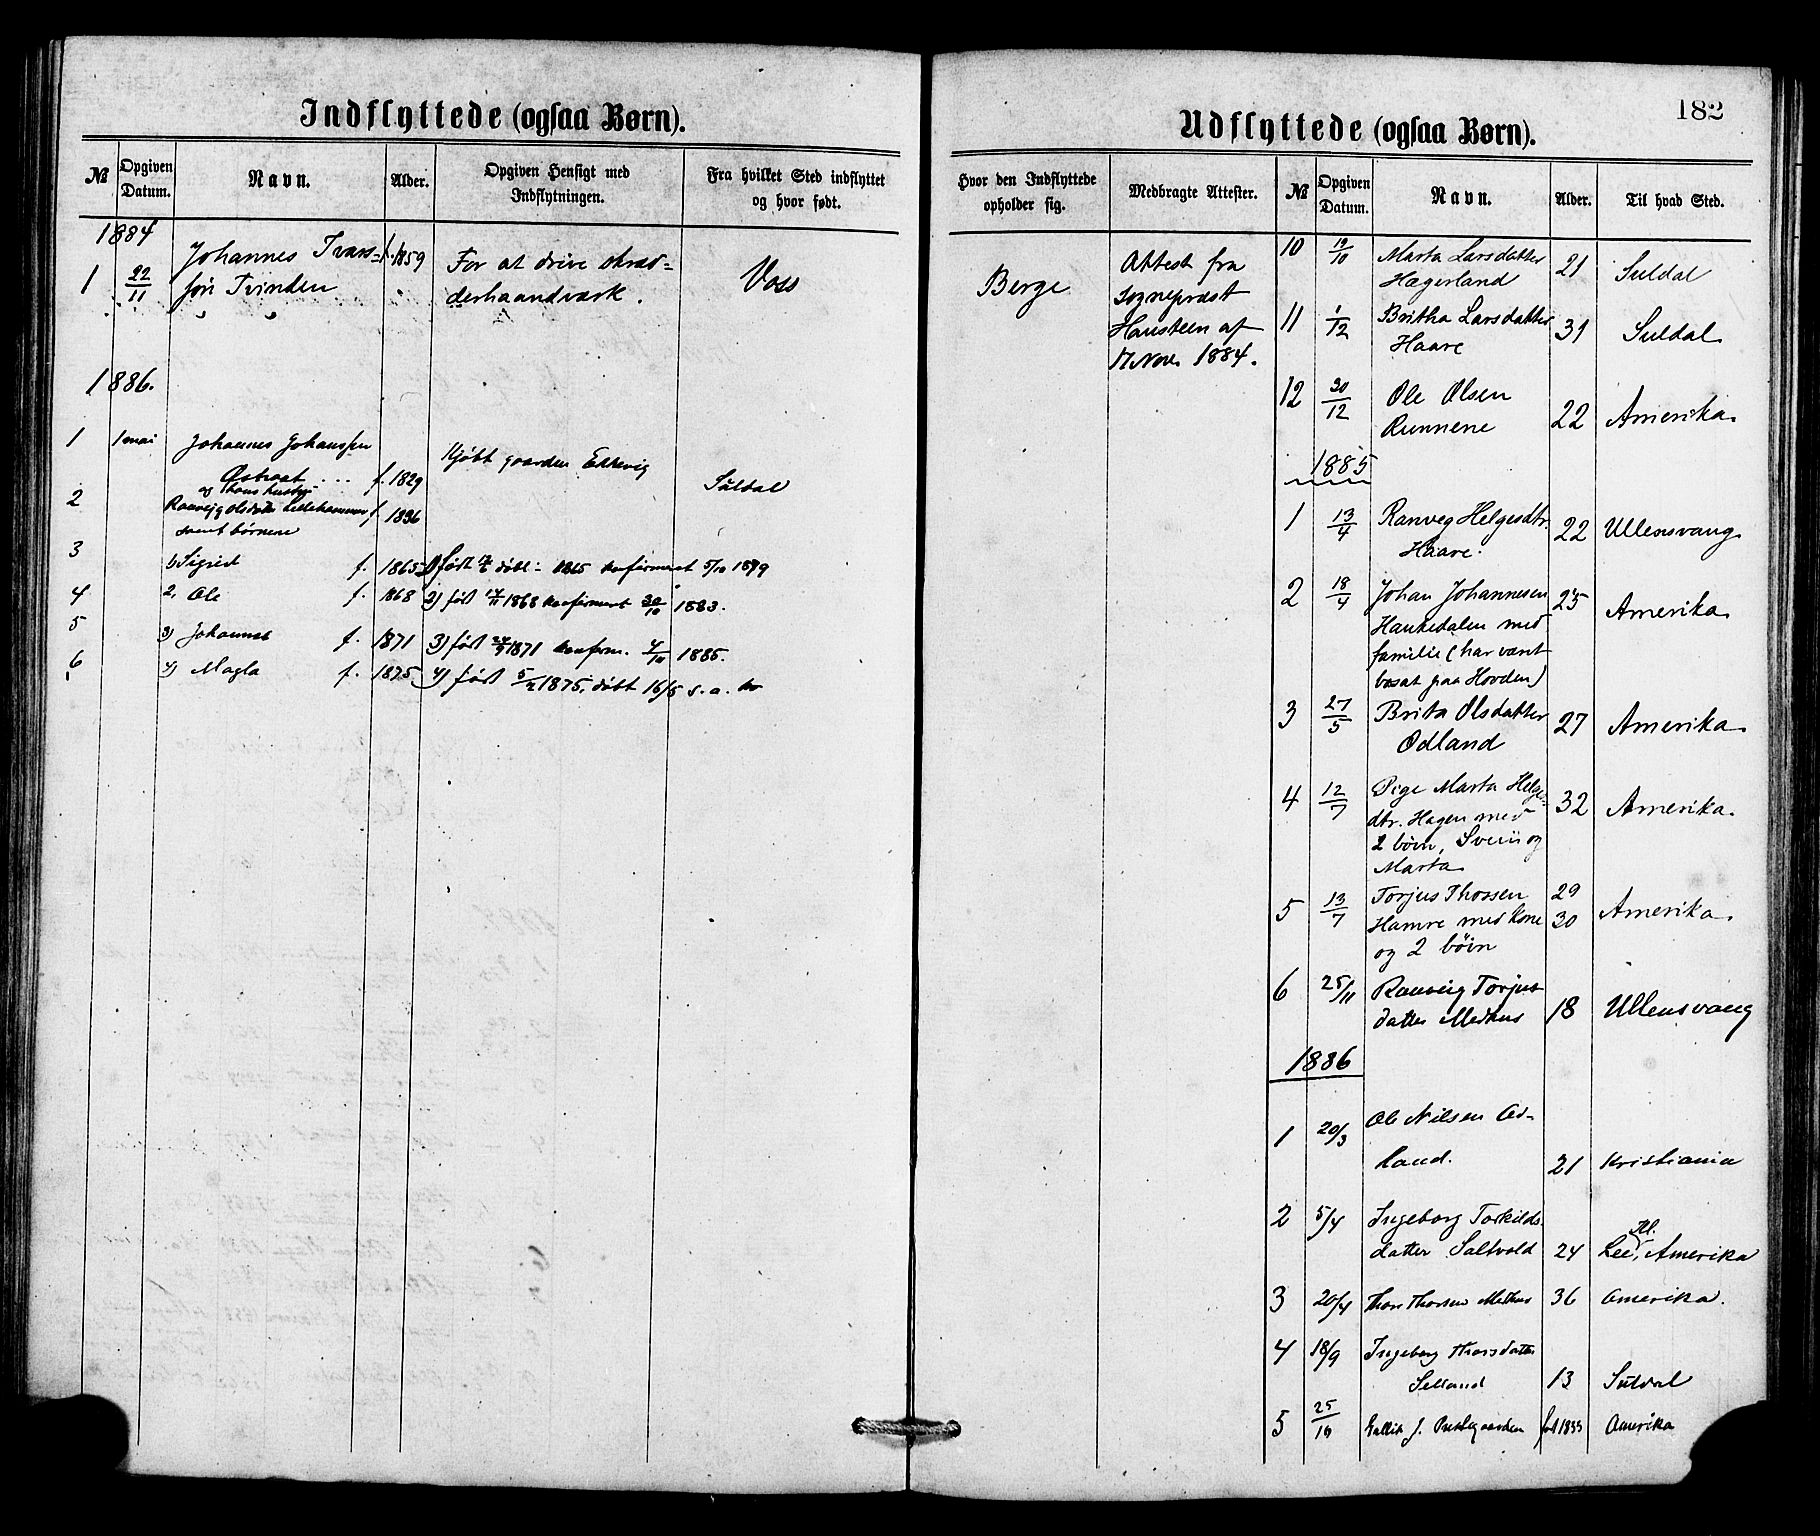 Indflyttede (ogsaa Børn).
№ Opgiven Datum. Navn. Alder. Opgiven Hensigt med Indflytningen. Fra hvilket Sted indflyttet og hvor født.
1884
1 22/11 Johannes Ivars= f. 1859 For at drive skræd= Voss
søn Tvinden derhaandværk.
1886.
1 1 mai Johannes Johanssen Kjøbt gaarden
Østraat f. 1829 Suldal
2 og hans hustru
Ranveig Olsdatter Lillehammer f. 1836
samt børnene
3 1) Sigrid f. 1865 1) født døbt 1865 konfirmeret 5/10 1879
4 2. Ole f. 1868 2) født 1868 konfirmeret 30/10 1883.
5 3) Johannes f. 1871 3) født 1871 konfirm. 4/10 1885.
6 4) Magla f. 1875 4) født 5/4 1875, døbt 16/5 s. a.
182
Udflyttede (ogsaa Børn).
Hvor den Indflyttede opholder sig. Medbragte Attester. № Opgiven Datum. Navn. Alder. Til hvad Sted.
Berge
Attest fra
Sognepræst
Hansteen af
17 Nov. 1884.
10 19/10 Marta Larsdatter 21 Suldal
Hægerland
11 1/12 Britha Larsdatter 31 Suldal
Haare
12 30/12 Ole Olsen 22 Amerika.
Runnene
1885
1 13/4 Ranveg Helgesdtr. 22 Ullensvang
Haare.
2 18/4 Johan Johannesen 25 Amerika
Haukedalen med
familie (har vært
bosat paa Hovden)
3 27/5 Brita Olsdatter 27 Amerika.
Odland
4 12/7 Pige Marta Helges- 32 Amerika.
dtr. Hagen med
2 børn, Svein og
Marta
5 13/7 Torjus Thorsen 29 Amerika.
Hamre med kone 30
og 2 børn
6 25/11 Ranveig Torjus-
datter Medhus 18 Ullensvang
1886
1 20/3 Ole Nilsen Od-
land. 21 Kristiania
2 5/4 Ingeborg Torkilds-
datter Saltvold 24 Lee, Ill. Amerika
3 20/4 Thor Thorsen Methus 36 Amerika.
4 18/9 Ingeborg Thorsdatter
Selland 13 Suldal
5 25/10 J. Prestegaarden født 1833 Amerika